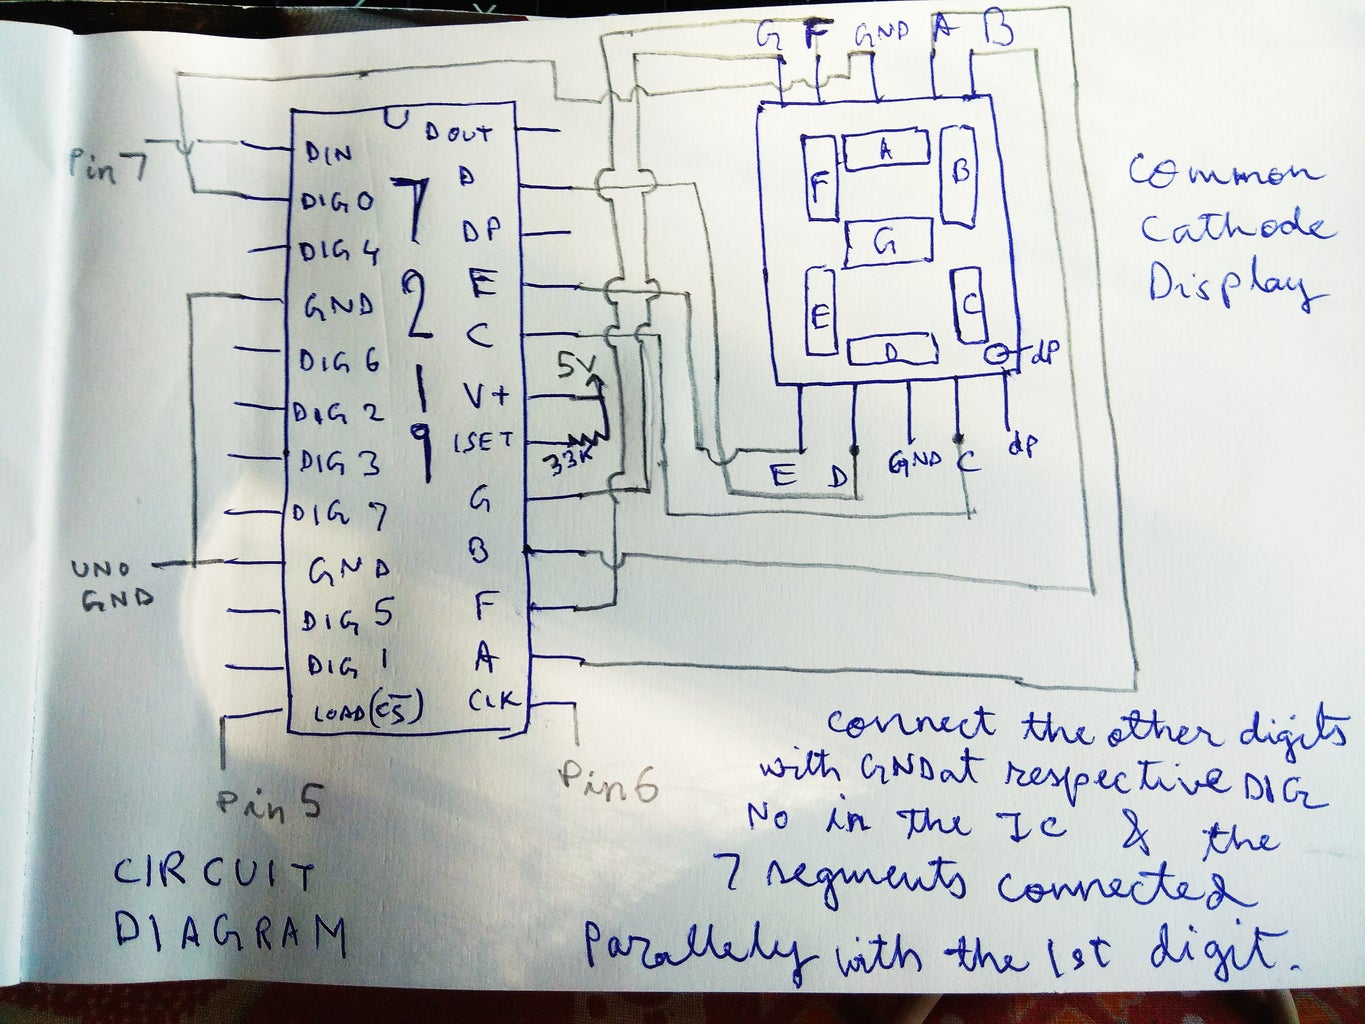 G F GND A B
DIN
DIG 0
DIG 4
GND
DIG 6
DIG 2
DIG 3
DIG 7
GND
DIG 5
DIG 1
LOAD (CS)
7
2
1
9
D OUT
D
DP
E
C
V+
ISET
G
B
F
A
CLK
Pin 7
UNO
GND
Pin 5
Pin 6
5V
33K
A
F
B
G
E
C
D
dp
E D GND C dp
Common
Cathode
Display
connect the other digits
with GND at respective DIG
No in the IC & the
7 segments connected
Parallely with the 1st digit.
CIRCUIT
DIAGRAM